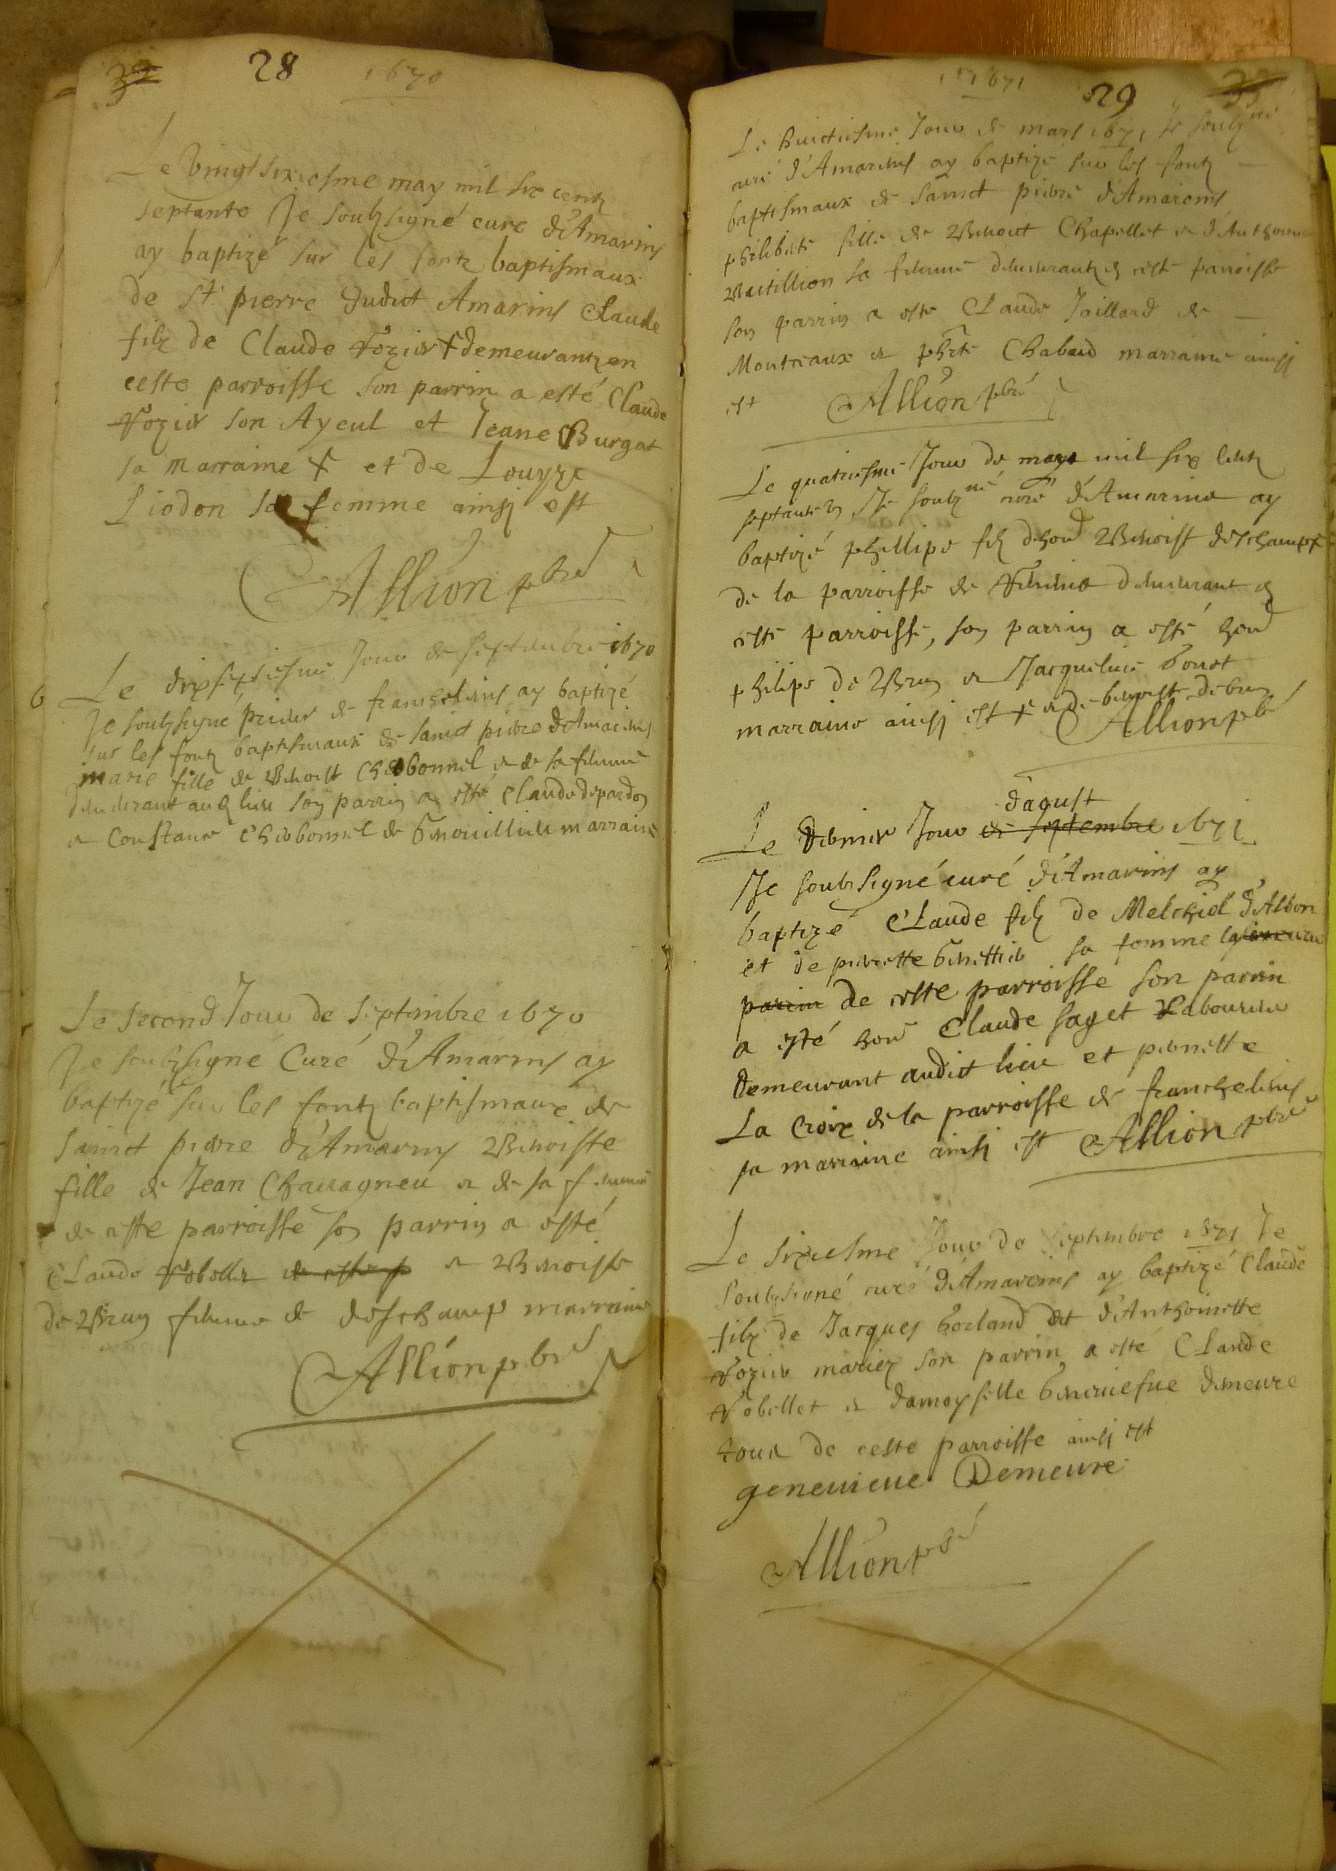 32 28 1670
Le vingt sixiesme may mil six centz
septante Je soubsigné curé d'Amarins
ay baptizé sur les fontz baptismaux
de st pierre dudict Amarins Claude
filz de Claude Vozier + demeurantz en
ceste parroisse son parrin a esté Claude
Vozier son Ayeul et Jeane Burgat
sa marraine + et de Louyze
Liodon sa femme ainsj est
Allion pbre
6 Le dixseptiesme Jour de septembre 1670
Je soubsigné prieur de franchelins ay baptizé
sur les fontz baptismaux de sainct pierre d'Amarins
marie fille de Benoist Chabonnel et de sa femme
demeurant aud lieu son parrin a esté Claude depardon
et Constance Chabonnel de Genouillieu marraine
Le second Jour de septembre 1670
Je soubsigné Curé d'Amarins ay
baptizé sur les fontz baptismaux de
sainct pierre d'Amarins Benoiste
fille de Jean Chavagneu et de sa femme
de ceste parroisse son parrin a esté
Claude Vobellet de ceste p et Benoiste
de Brun femme de deschamp marraine
Allion pbre
1671 29 33
Le huictiesme Jour de mars 1671 Je soubsné
curé d'Amareins ay baptizé sur les fontz
baptismaux de sainct pierre d'Amareins
philiberte fille de Benoist Chapellet et d'Anthoine
sa femme demeurantz en ceste parroisse
son parrin a esté Claude Jaillard de
Montceaux et phte Chabaud marraine ainsj
est Allion pbre
Le quatriesme Jour de may mil six centz
septante un Je soubzné curé d'Amarins ay
baptizé phillipe filz d'hond Benoist deschamps
de la parroisse de demeurant en
ceste parroisse, son parrin a esté hond
philipe de Brun et Jacqueline bonet
marraine ainsj est + et de benoiste debrun
Allion pbre
d'aoust
Le dernier Jour de septembre 1671
Je soubsigné curé d'Amarins ay
baptizé Claude filz de Melchiol d'Albon
et de pierrette sa femme
parrin de ceste parroisse son parrin
a esté hond Claude saget Laboureur
demeurant audict lieu et pernette
La Croix de la parroisse de franchelins
sa marraine ainsj est Allion pbre
Le sixiesme Jour de septembre 1671 Je
soubsigné curé d'Amareins ay baptizé Claude
filz de Jacques borland et d'Anthoinette
Vozier mariez son parrin a esté Claude
Vobellet et damoyselle Geneviefve demeure
tous de ceste parroisse ainsj est
genevieve Demeure
Allion pbré